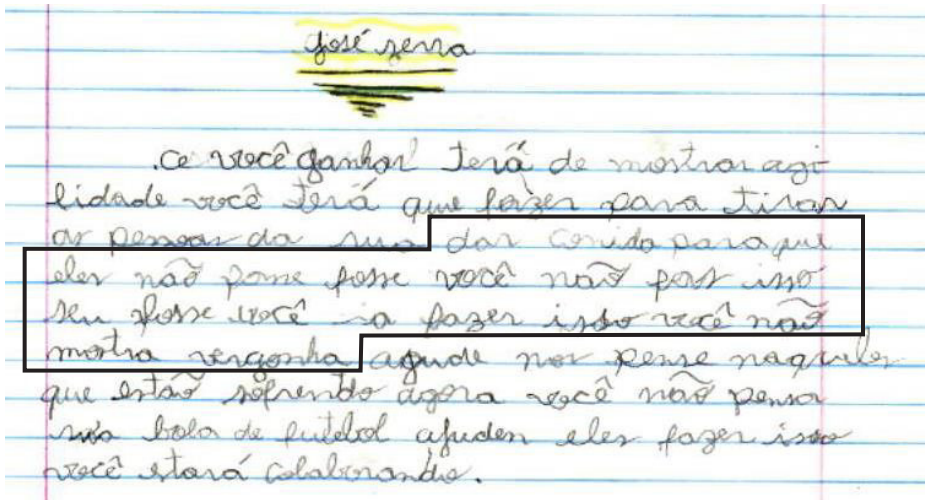 José serra
.ce você ganhar terá de mostrar agi
lidade você terá que fazer para tirar
as pessoas da rua dar comida para que
eles não fosse você não faz isso
seu fosse você ia fazer isso você não
mostra vergonha ajude nos pense naqueles
que estão sofrendo agora você não pensa
bola de futebol ajuden eles fazer isso
você stará colaborando.